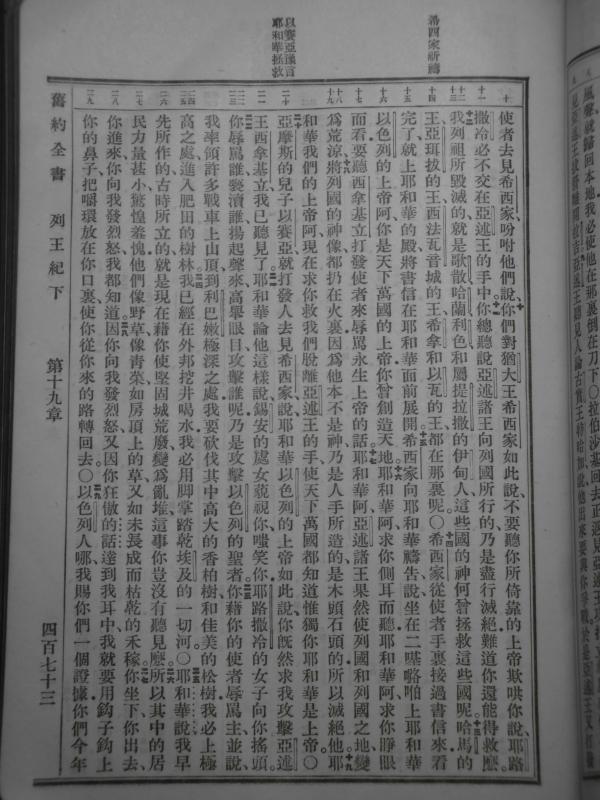 希西家祈禱
以賽亞預言
耶和華拯救
十 使者去見希西家吩咐他們說你們對猶大王希西家如此說不要聽你所倚靠的上帝欺哄你說耶路
十一 撒冷必不交在亞述王的手中你總聽說亞述諸王向列國所行的乃是盡行滅絕難道你還能得救麼
我列祖所毀滅的就是歌散哈蘭利色和屬提拉撒的伊甸人這些國的神何曾拯救這些國呢哈馬的
十四 王亞珥拔的王西法瓦音城的王希拿和以瓦的王都在那裏呢○希西家從使者手裏接過書信來看
十五 完了就上耶和華的殿將書信在耶和華面前展開希西家向耶和華禱告說坐在二𠼖𡀔啪上耶和華
十六 以色列的上帝阿你是天下萬國的上帝你曾創造天地耶和華阿求你側耳而聽耶和華阿求你睜眼
十七 而看要聽西拿基立打發使者來辱罵永生上帝的話耶和華阿亞述諸王果然使列國和列國之地變
為荒涼將列國的神像都扔在火裏因為他本不是神乃是人手所造的是木頭石頭的所以滅絕他
和華我們的上帝阿現在求你救我們脫離亞述王的手使天下萬國都知道惟獨你耶和華是上帝○
二十 亞摩斯的兒子以賽亞就打發人去見希西家說耶和華以色列的上帝如此說你既然求我攻擊亞述
二一 王西拿基立我已聽見了耶和華論他這樣說錫安的處女藐視你嗤笑你耶路撒冷的女子向你搖頭
二二 你辱罵誰褻瀆誰揚起聲來高舉眼目攻擊誰呢乃是攻擊以色列的聖者你藉你的使者辱罵主並說
我率領許多戰車上山頂到利巴嫩極深之處我要砍伐其中高大的香柏樹和佳美的松樹我必上極
高之處進入肥田的樹林我已經在外邦挖井喝水我必用腳掌踏乾埃及的一切河○耶和華說我早
先所作的古時所立的就是現在藉你使堅固城荒廢變為亂堆這事你豈沒有聽見麼所以其中的居
二七 民力量甚小驚惶羞愧他們像野草像青菜如房頂上的草又如未長成而枯乾的禾稼你坐下你出去
二八 你進來你向我發烈怒我都知道因你向我發烈怒又因你狂傲的話達到我耳中我就要用鈎子鈎上
二九 你的鼻子把嚼環放在你口裏使你從你來的路轉回去○以色列人哪我賜你們一個證據你們今年
舊約全書 列王紀下 第十九章 四百七十三